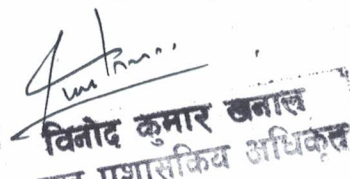 विनोद कुमार खनाल
प्रशासकिय अधिकृत